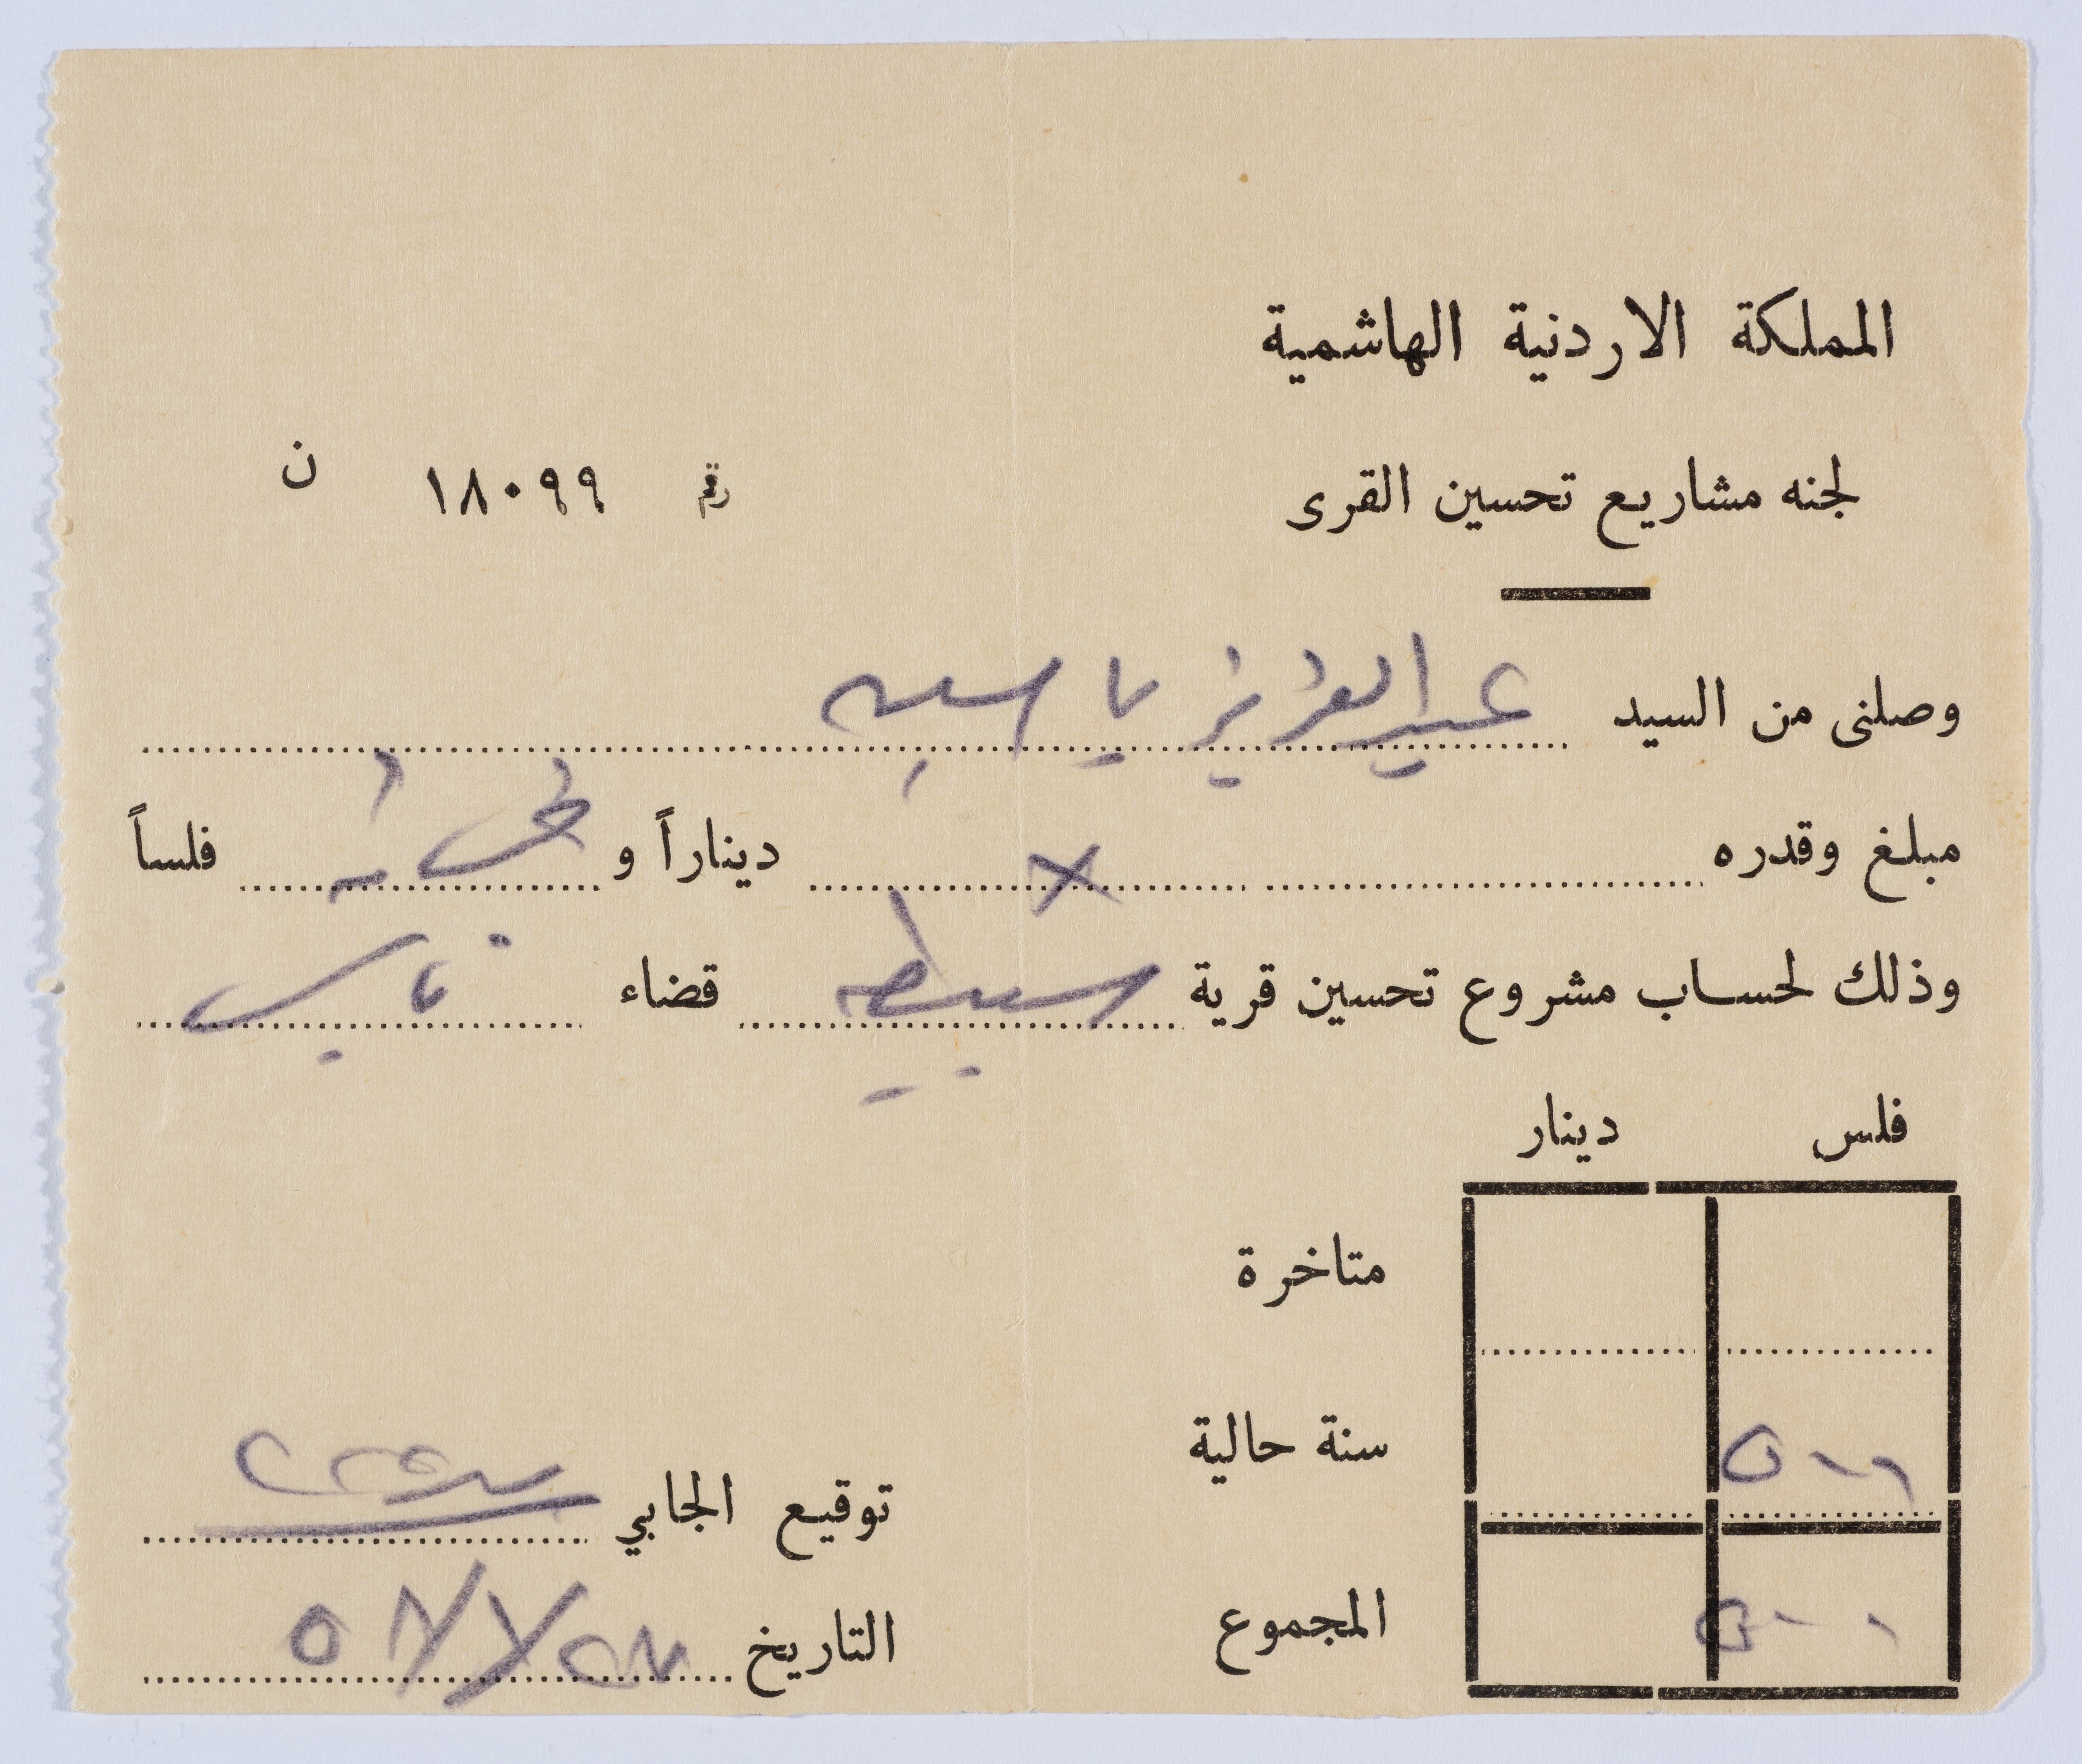 المملكة الاردنية الهاشمية
لجنه مشاريع تحسين القرى
رقم ١٨٠٩٩ ن
وصلنى من السيد عبد العزيز ياسين
مبلغ وقدره × ديناراً و فلساً
وذلك لحساب مشروع تحسين قرية سبسطيه قضاء نابلس
فلس دينار
متاخرة
سنة حالية
المجموع
توقيع الجابي
التاريخ